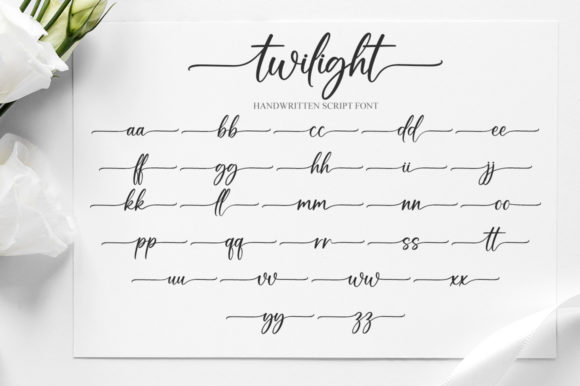 twilight
HANDWRITTEN SCRIPT FONT
aa bb cc dd ee
ff gg hh ii jj
kk ll mm nn oo
pp qq rr ss tt
uu vv ww xx
yy zz